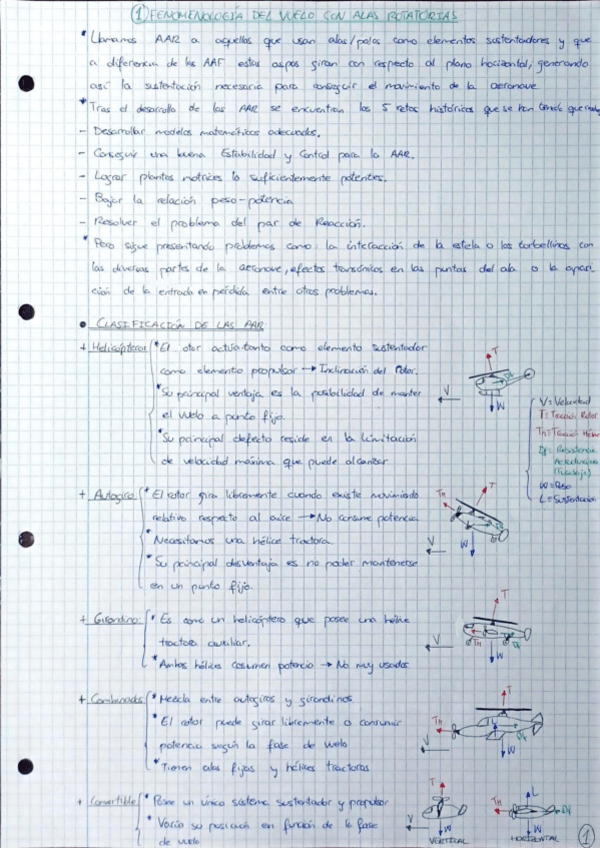 1 FENOMENOLOGÍA DEL VUELO CON ALAS ROTATORIAS
* Llamamos AAR a aquellos que usan alas/palas como elementos sustentadores y que
a diferencia de las AAF estas aspas giran con respecto al plano horizontal, generando
así la sustentación necesaria para conseguir el movimiento de la aeronave
* Tras el desarrollo de las AAR se encuentran los 5 retos históricos que se han tenido que
- Desarrollar modelos matemáticos adecuados.
- Conseguir una buena Estabilidad y Control para la AAR.
- Lograr plantas motrices lo suficientemente potentes.
- Bajar la relación peso-potencia
- Resolver el problema del par de Reacción.
* Pero sigue presentando problemas como: la interacción de la estela o los torbellinos con
las diversas partes de la aeronave, efectos transónicos en las puntas del ala o la apari-
ción de la entrada en pérdida entre otros problemas.
• CLASIFICACIÓN DE LAS AAR
+ Helicópteros * El otor actúa tanto como elemento sustentador
como elemento propulsor → Inclinación del Rotor.
* Su principal ventaja es la posibilidad de manter
el vuelo a punto fijo.
* Su principal defecto reside en la limitación
de velocidad máxima que puede alcanzar
T
Df
V
W
V = Velocidad
T = Tracción Rotor
TH = Tracción Hélice
Df = Resistencia
Aerodinámica
(Fuselaje)
W = Peso
L = Sustentación
+ Autogiro * El rotor gira libremente cuando existe movimiento
relativo respecto al aire → No consume potencia
* Necesitamos una hélice tractora.
* Su principal desventaja es no poder mantenerse
en un punto fijo.
TH
T
V
W
+ Girondino * Es como un helicóptero que posee una hélice
tractora auxiliar.
* Ambas hélices consumen potencia → No muy usados
T
V
TH
W
+ Combinados * Mezcla entre autogiros y girondinos
* El rotor puede girar libremente o consumir
potencia según la fase de vuelo
* Tienen alas fijas y hélices tractoras
T
TH
L
Df
V
W
+ Convertible * Posee un único sistema sustentador y propulsor
* Varía su posición en función de la fase
de vuelo
T
V
W
VERTICAL
L
TH
Df
V
W
HORIZONTAL
1